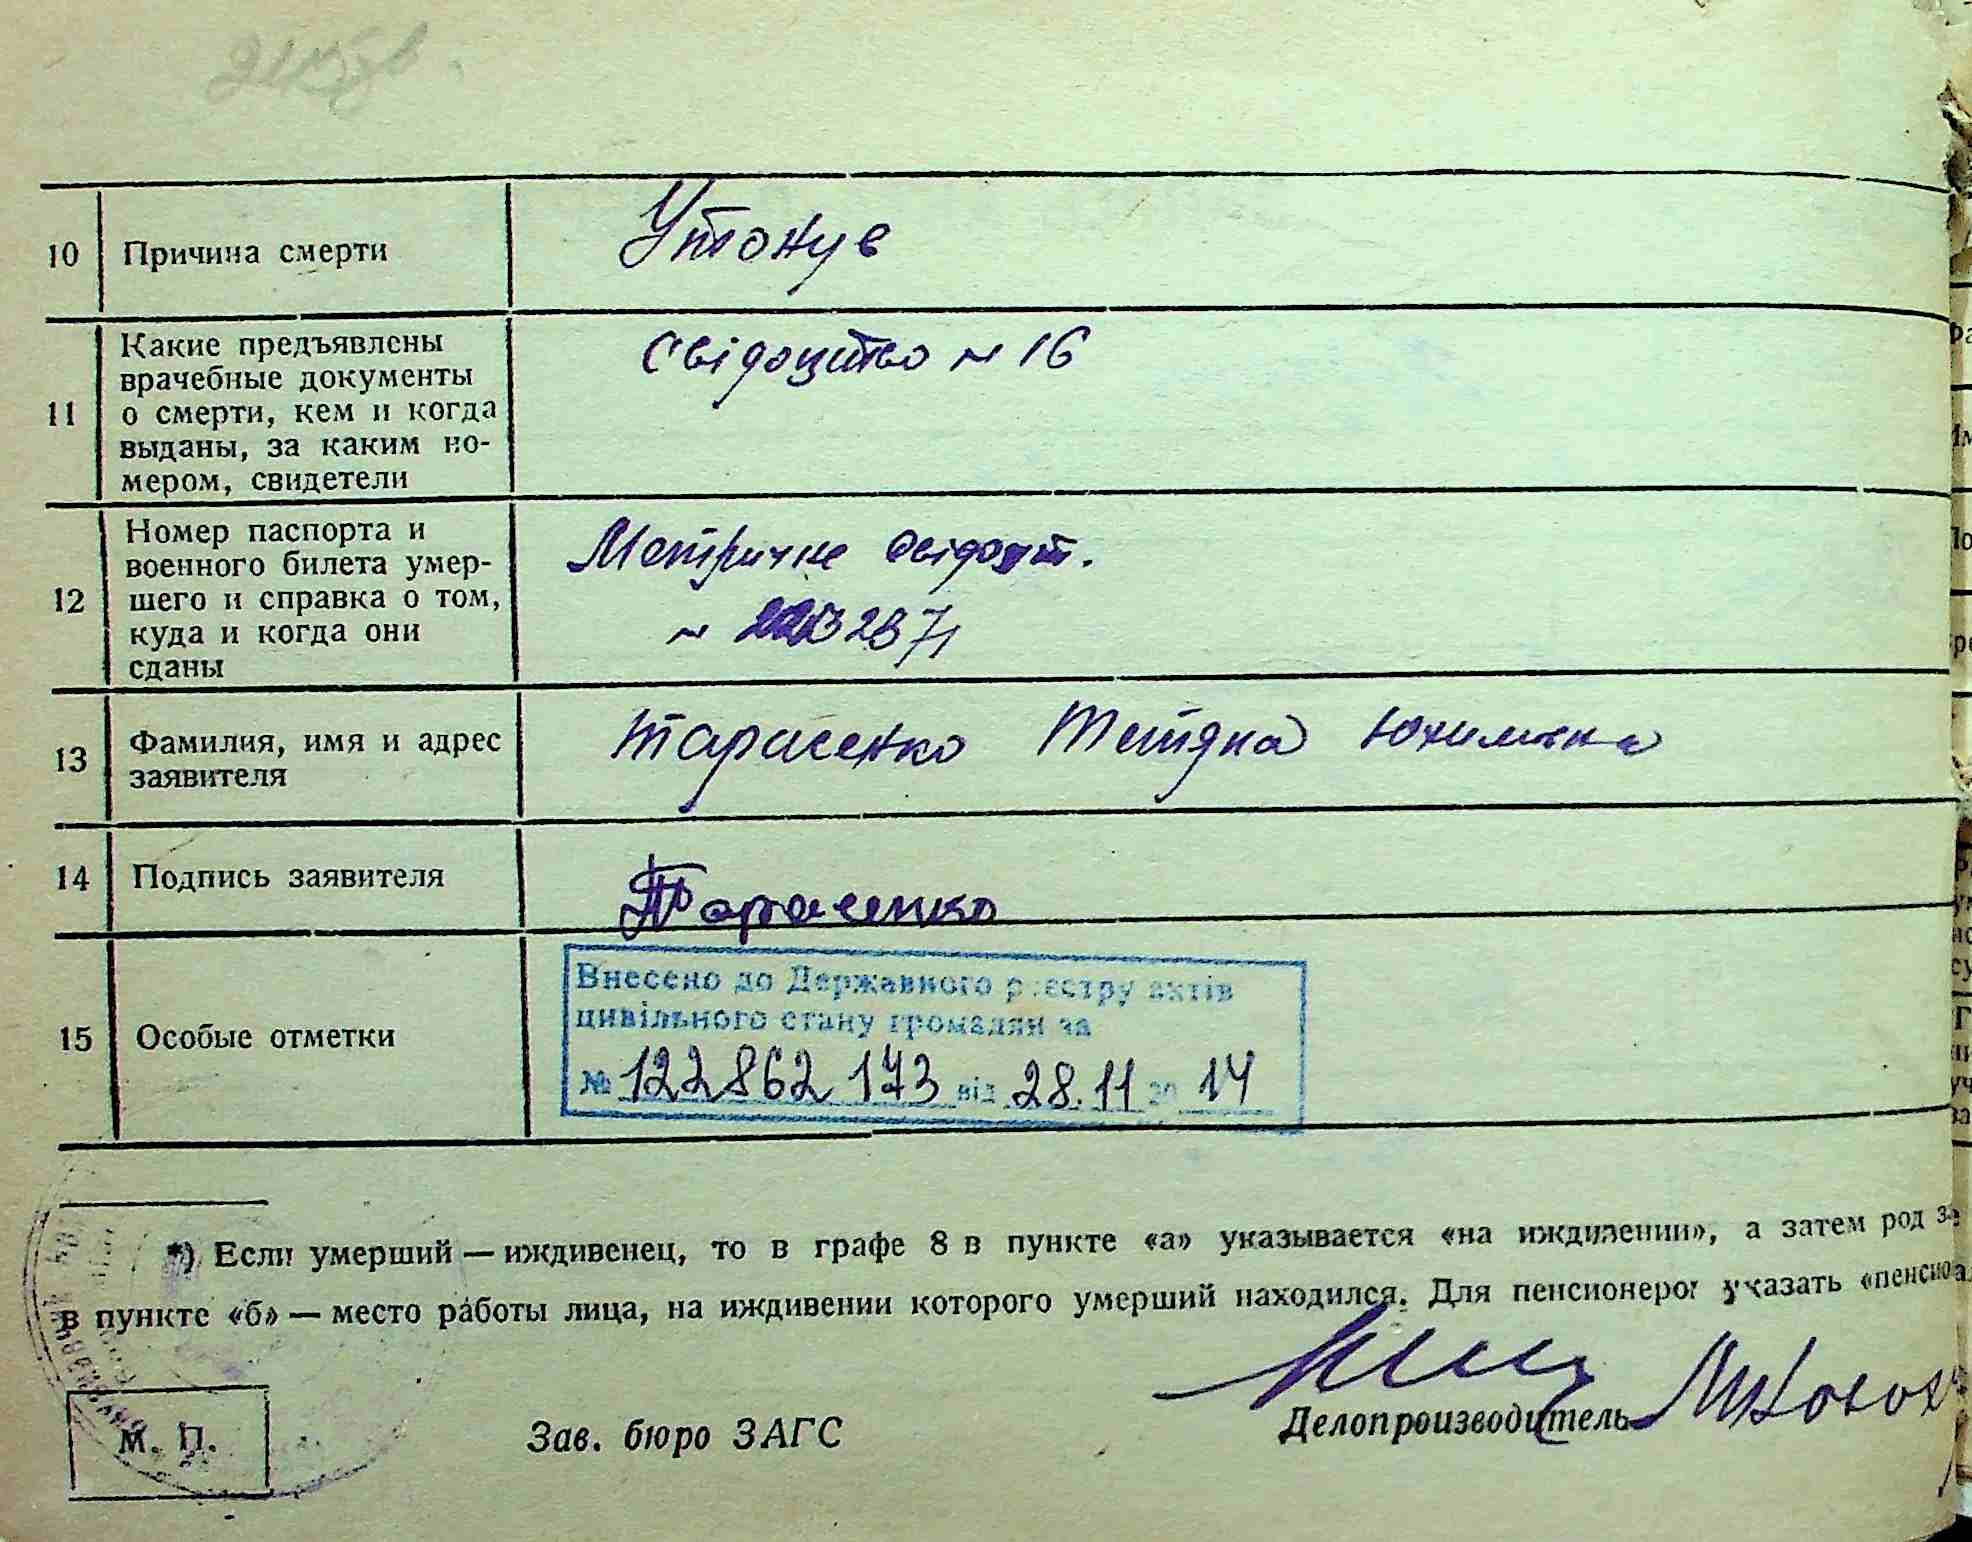 10 Причина смерти Утонув
11 Какие предъявлены
врачебные документы
о смерти, кем и когда
выданы, за каким но-
мером, свидетели
Свідоцтво № 16
12 Номер паспорта и
военного билета умер-
шего и справка о том,
куда и когда они
сданы
Метричне свідоцт.
№
13 Фамилия, имя и адрес
заявителя
Тарасенко Тетяна Юхимівна
14 Подпись заявителя Тарасенко
15 Особые отметки
Внесено до Державного реєстру актів
цивільного стану громадян за
№ 122862 173 від 28.11 20 14
*) Если умерший — иждивенец, то в графе 8 в пункте «а» указывается «на иждивении», а затем род за
в пункте «б» — место работы лица, на иждивении которого умерший находился. Для пенсионеров указать «пенсиона
М. П.
Зав. бюро ЗАГС
Делопроизводитель